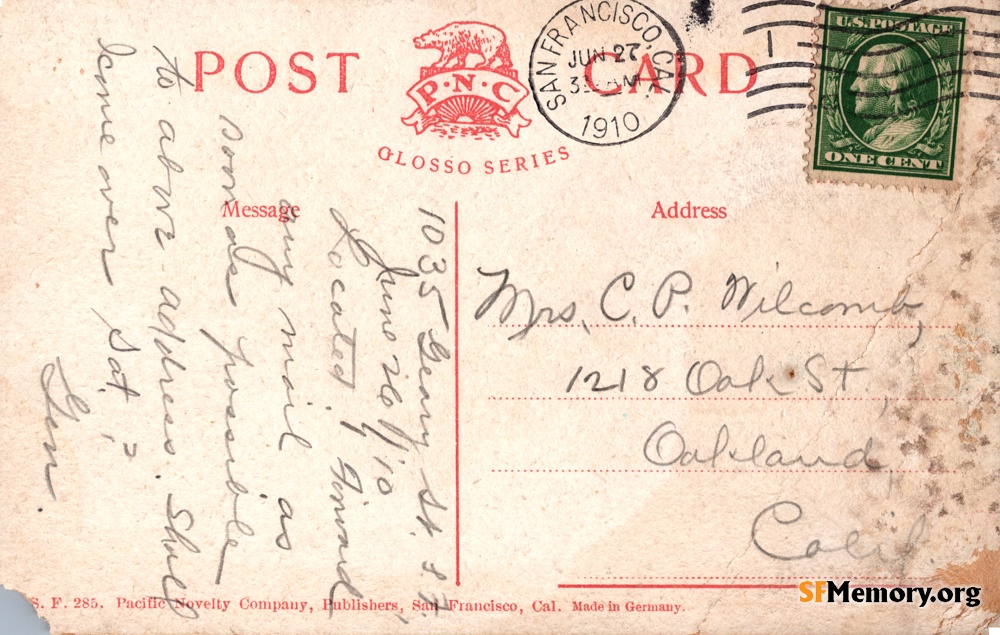 POST CARD
P·N·C
GLOSSO SERIES
SAN FRANCISCO, CAL.
JUN 27
3 AM
1910
U.S. POSTAGE
ONE CENT
Message
Address
1035 Geary St. S F
June 26/10
Located. Forward
any mail as
soon as possible
to above address. Shall
come over Sat.
Gen
Mrs. C. P. Wilcomb,
1218 Oak St.,
Oakland
Calif.
S. F. 285. Pacific Novelty Company, Publishers, San Francisco, Cal. Made in Germany.
SFMemory.org